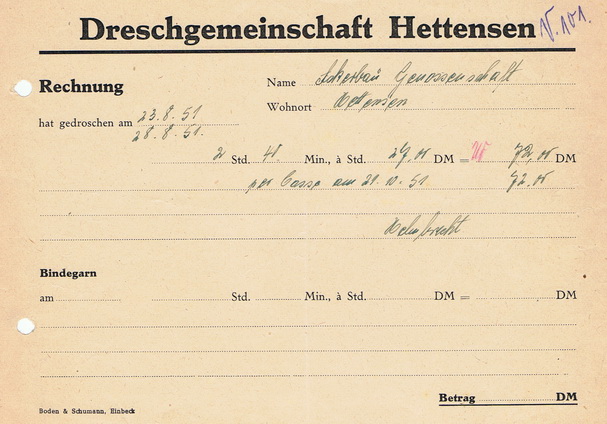 Dreschgemeinschaft Hettensen V. 101.
Rechnung
Name Ackerbau Genossenschaft
Wohnort Hettensen
hat gedroschen am 23.8.51
28.8.51.
2 Std. 48 Min., à Std. DM = 72,00 DM
per Casse am 29.10.51 72.00
Bindegarn
am Std. Min., à Std. DM = DM
Betrag DM
Boden & Schumann, Einbeck